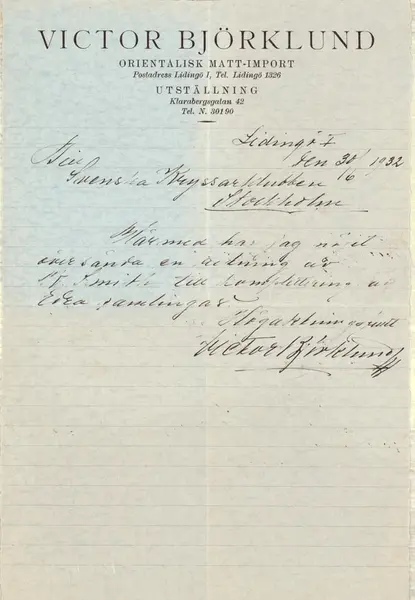 VICTOR BJÖRKLUND
ORIENTALISK MATT-IMPORT
Postadress Lidingö 1, Tel. Lidingö 1326
UTSTÄLLNING
Klarabergsgatan 42
Tel. N. 30190
Lidingö I
den 30/6 1932
Till
Svenska Kryssarklubben
Stockholm
Härmed har jag nöjet
översända en ritning av
Smith till komplettering av
Edra samlingar
Högaktningsfullt
Victor Björklund